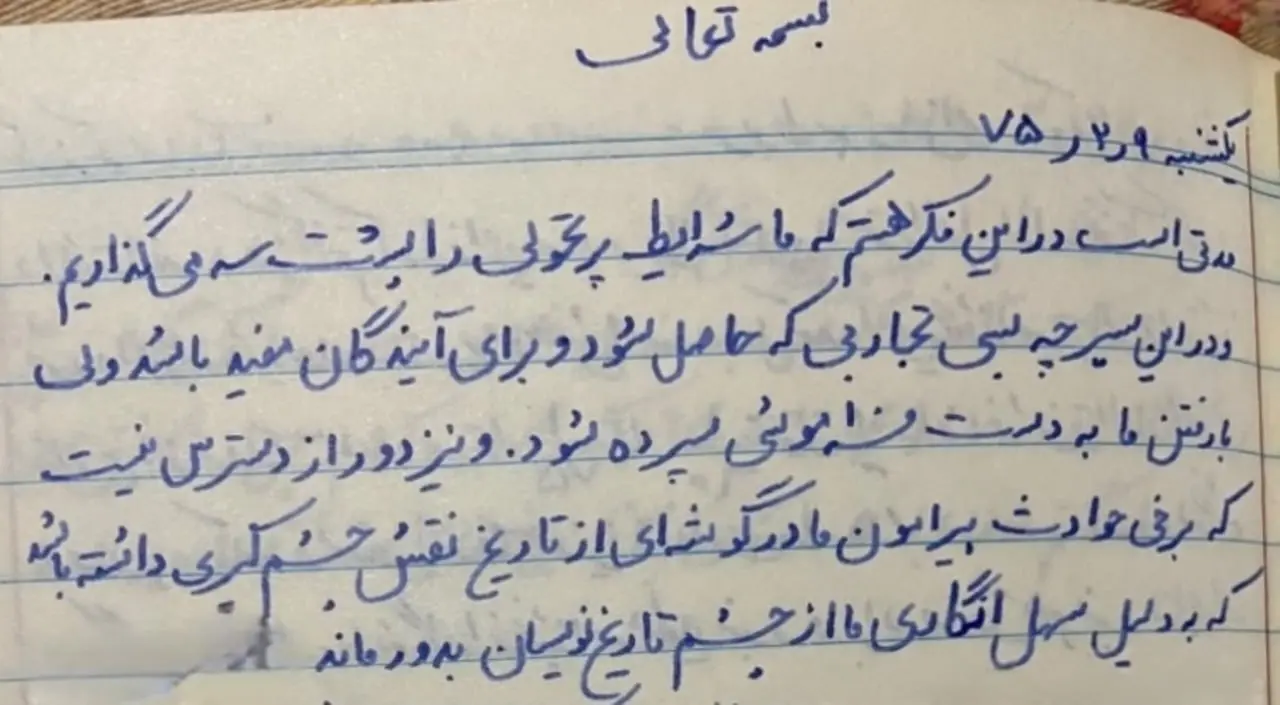 بسمه تعالی
یکشنبه ۹ر۲ر۷۵
مدتی است در این فکر هستم که ما شرایط پر تحولی را پشت سر می گذاریم.
و در این سیر چه بسی تجاربی که حاصل شود و برای آیندگان مفید باشد ولی
با رفتن ما به دست فراموشی سپرده شود. و نیز دور از دسترس نیست
که برخی حوادث پیرامون ما در گوشه ای از تاریخ نقش چشم گیری داشته باشد
که به دلیل سهل انگاری ما از چشم تاریخ نویسان بدور ماند